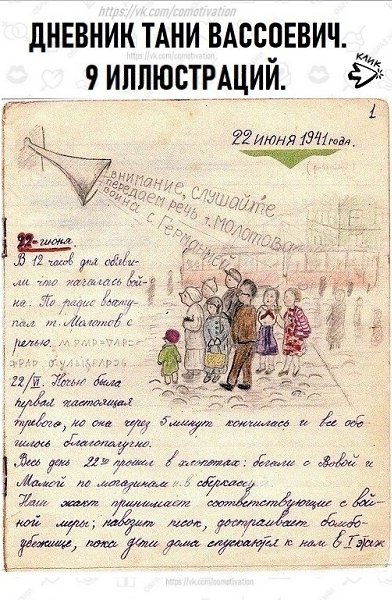 https://vk.com/comotivation
ДНЕВНИК ТАНИ ВАССОЕВИЧ.
9 ИЛЛЮСТРАЦИЙ.
КЛИК
1
22 июня 1941 года.
внимание, слушайте
передаем речь т. МОЛОТОВА
война с Германией
22-июня.
В 12 часов дня объяви-
ли что началась вой-
на. По радио высту-
пал т. Молотов с
речью.
22/VI. Ночью была
первая настоящая
тревога, но она через 5 минут кончилась и все обо
шлось благополучно.
Весь день 22го прошел в хлопотах: бегали с Вовой и
Мамой по магазинам и в сберкассу.
Наш жакт принимает соответствующие с вой-
ной меры; навозит песок, достраивает бомбо-
убежище, пока дети дома спускаются к нам в I этаж
https://vk.com/comotivation